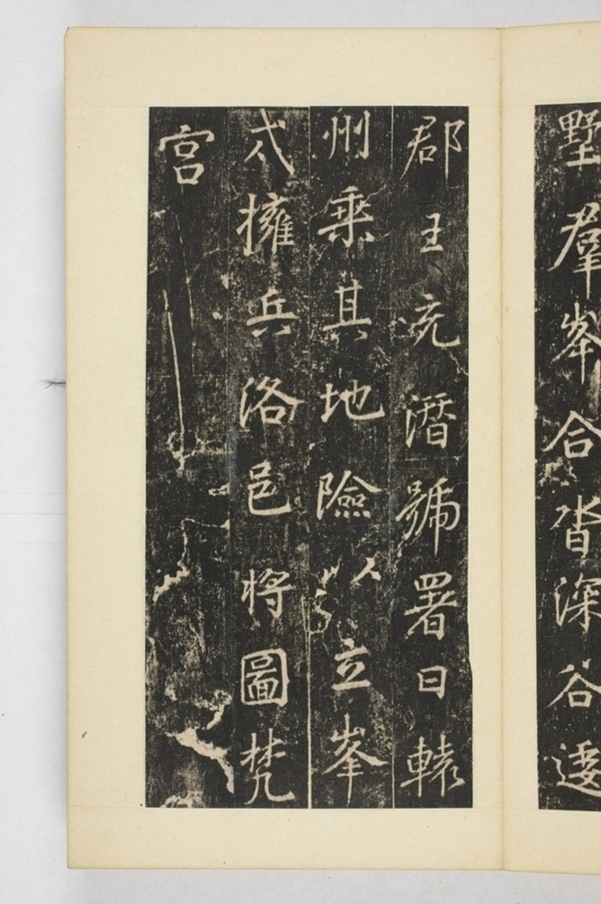 墅羣峯合沓深谷逶
郡王充潜號署曰轘
州乗其地險以立峯
戍擁兵洛邑将圖梵
宮